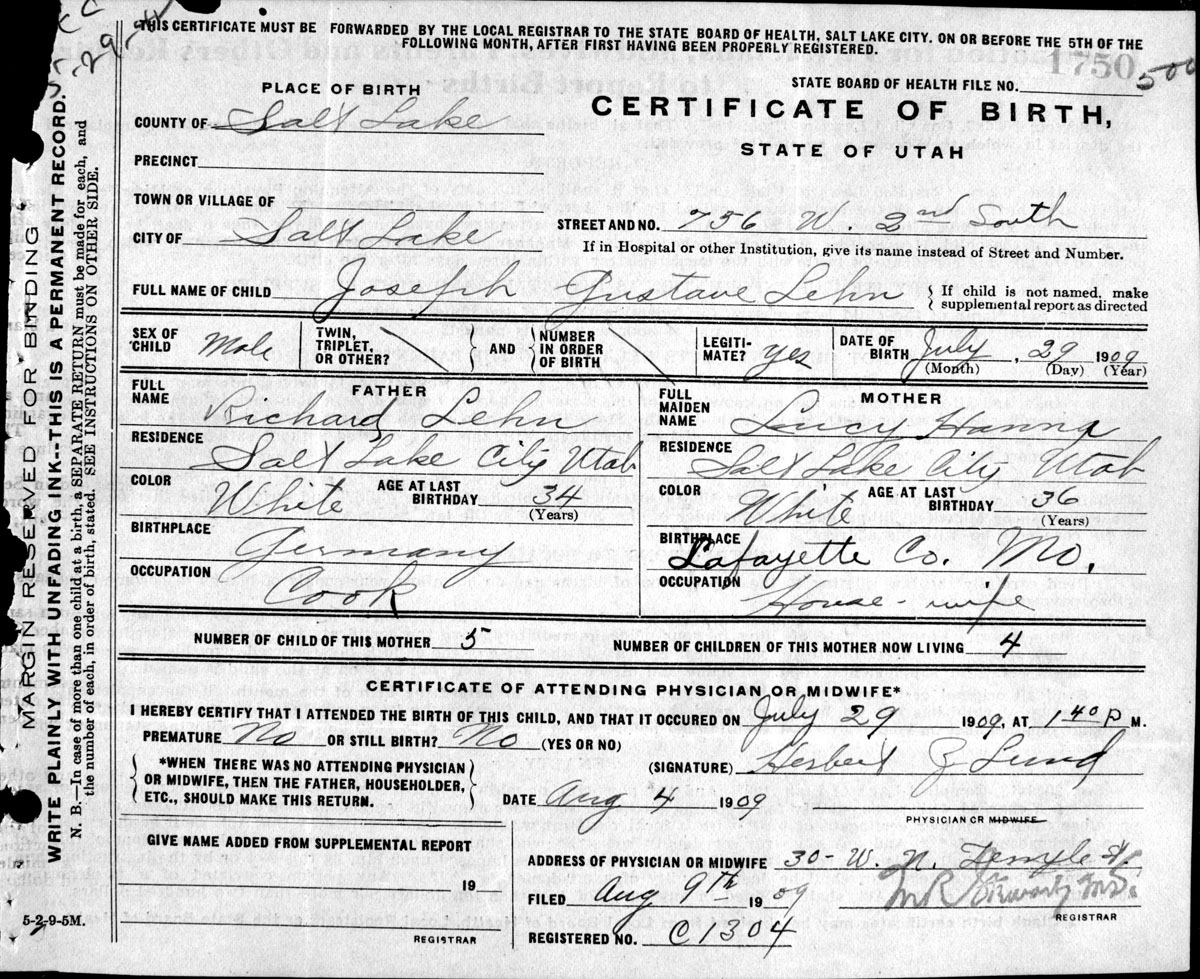 THIS CERTIFICATE MUST BE FORWARDED BY THE LOCAL REGISTRAR TO THE STATE BOARD OF HEALTH, SALT LAKE CITY, ON OR BEFORE THE 5TH OF THE
FOLLOWING MONTH, AFTER FIRST HAVING BEEN PROPERLY REGISTERED.
1750
500
STATE BOARD OF HEALTH FILE NO.
PLACE OF BIRTH
CERTIFICATE OF BIRTH,
STATE OF UTAH
COUNTY OF Salt Lake
PRECINCT
TOWN OR VILLAGE OF
CITY OF Salt Lake
STREET AND NO. 756 W. 2nd South
If in Hospital or other Institution, give its name instead of Street and Number.
FULL NAME OF CHILD Joseph Gustave Lehn { If child is not named, make
supplemental report as directed
SEX OF CHILD Male TWIN, TRIPLET, OR OTHER? } AND { NUMBER IN ORDER OF BIRTH LEGITI-MATE? yes DATE OF BIRTH July, 29 1909
(Month) (Day) (Year)
FATHER
FULL NAME Richard Lehn
RESIDENCE
Salt Lake City Utah
COLOR White AGE AT LAST BIRTHDAY 34
(Years)
BIRTHPLACE
Germany
OCCUPATION Cook
MOTHER
FULL MAIDEN NAME Lucy Hanna
RESIDENCE
Salt Lake City Utah
COLOR White AGE AT LAST BIRTHDAY 36
(Years)
BIRTHPLACE
Lafayette Co. Mo.
OCCUPATION
House-wife
NUMBER OF CHILD OF THIS MOTHER 5 NUMBER OF CHILDREN OF THIS MOTHER NOW LIVING 4
CERTIFICATE OF ATTENDING PHYSICIAN OR MIDWIFE*
I HEREBY CERTIFY THAT I ATTENDED THE BIRTH OF THIS CHILD, AND THAT IT OCCURED ON July 29 1909, AT 1 40 P M.
PREMATURE No OR STILL BIRTH? No (YES OR NO)
{ *WHEN THERE WAS NO ATTENDING PHYSICIAN
OR MIDWIFE, THEN THE FATHER, HOUSEHOLDER,
ETC., SHOULD MAKE THIS RETURN. }
(SIGNATURE) Herbert Z Lund
DATE Aug 4 1909
PHYSICIAN OR MIDWIFE
GIVE NAME ADDED FROM SUPPLEMENTAL REPORT
19
REGISTRAR
ADDRESS OF PHYSICIAN OR MIDWIFE 30- W. N. Temple St.
FILED Aug 9th 1909
REGISTRAR
REGISTERED NO. C1304
5-2-9-5M.
MARGIN RESERVE FOR BINDING
WRITE PLAINLY WITH UNFADING INK--THIS IS A PERMANENT RECORD.
N. B.—In case of more than one child at a birth, a SEPARATE RETURN must be made for each, and
the number of each, in order of birth, stated. SEE INSTRUCTIONS ON OTHER SIDE.